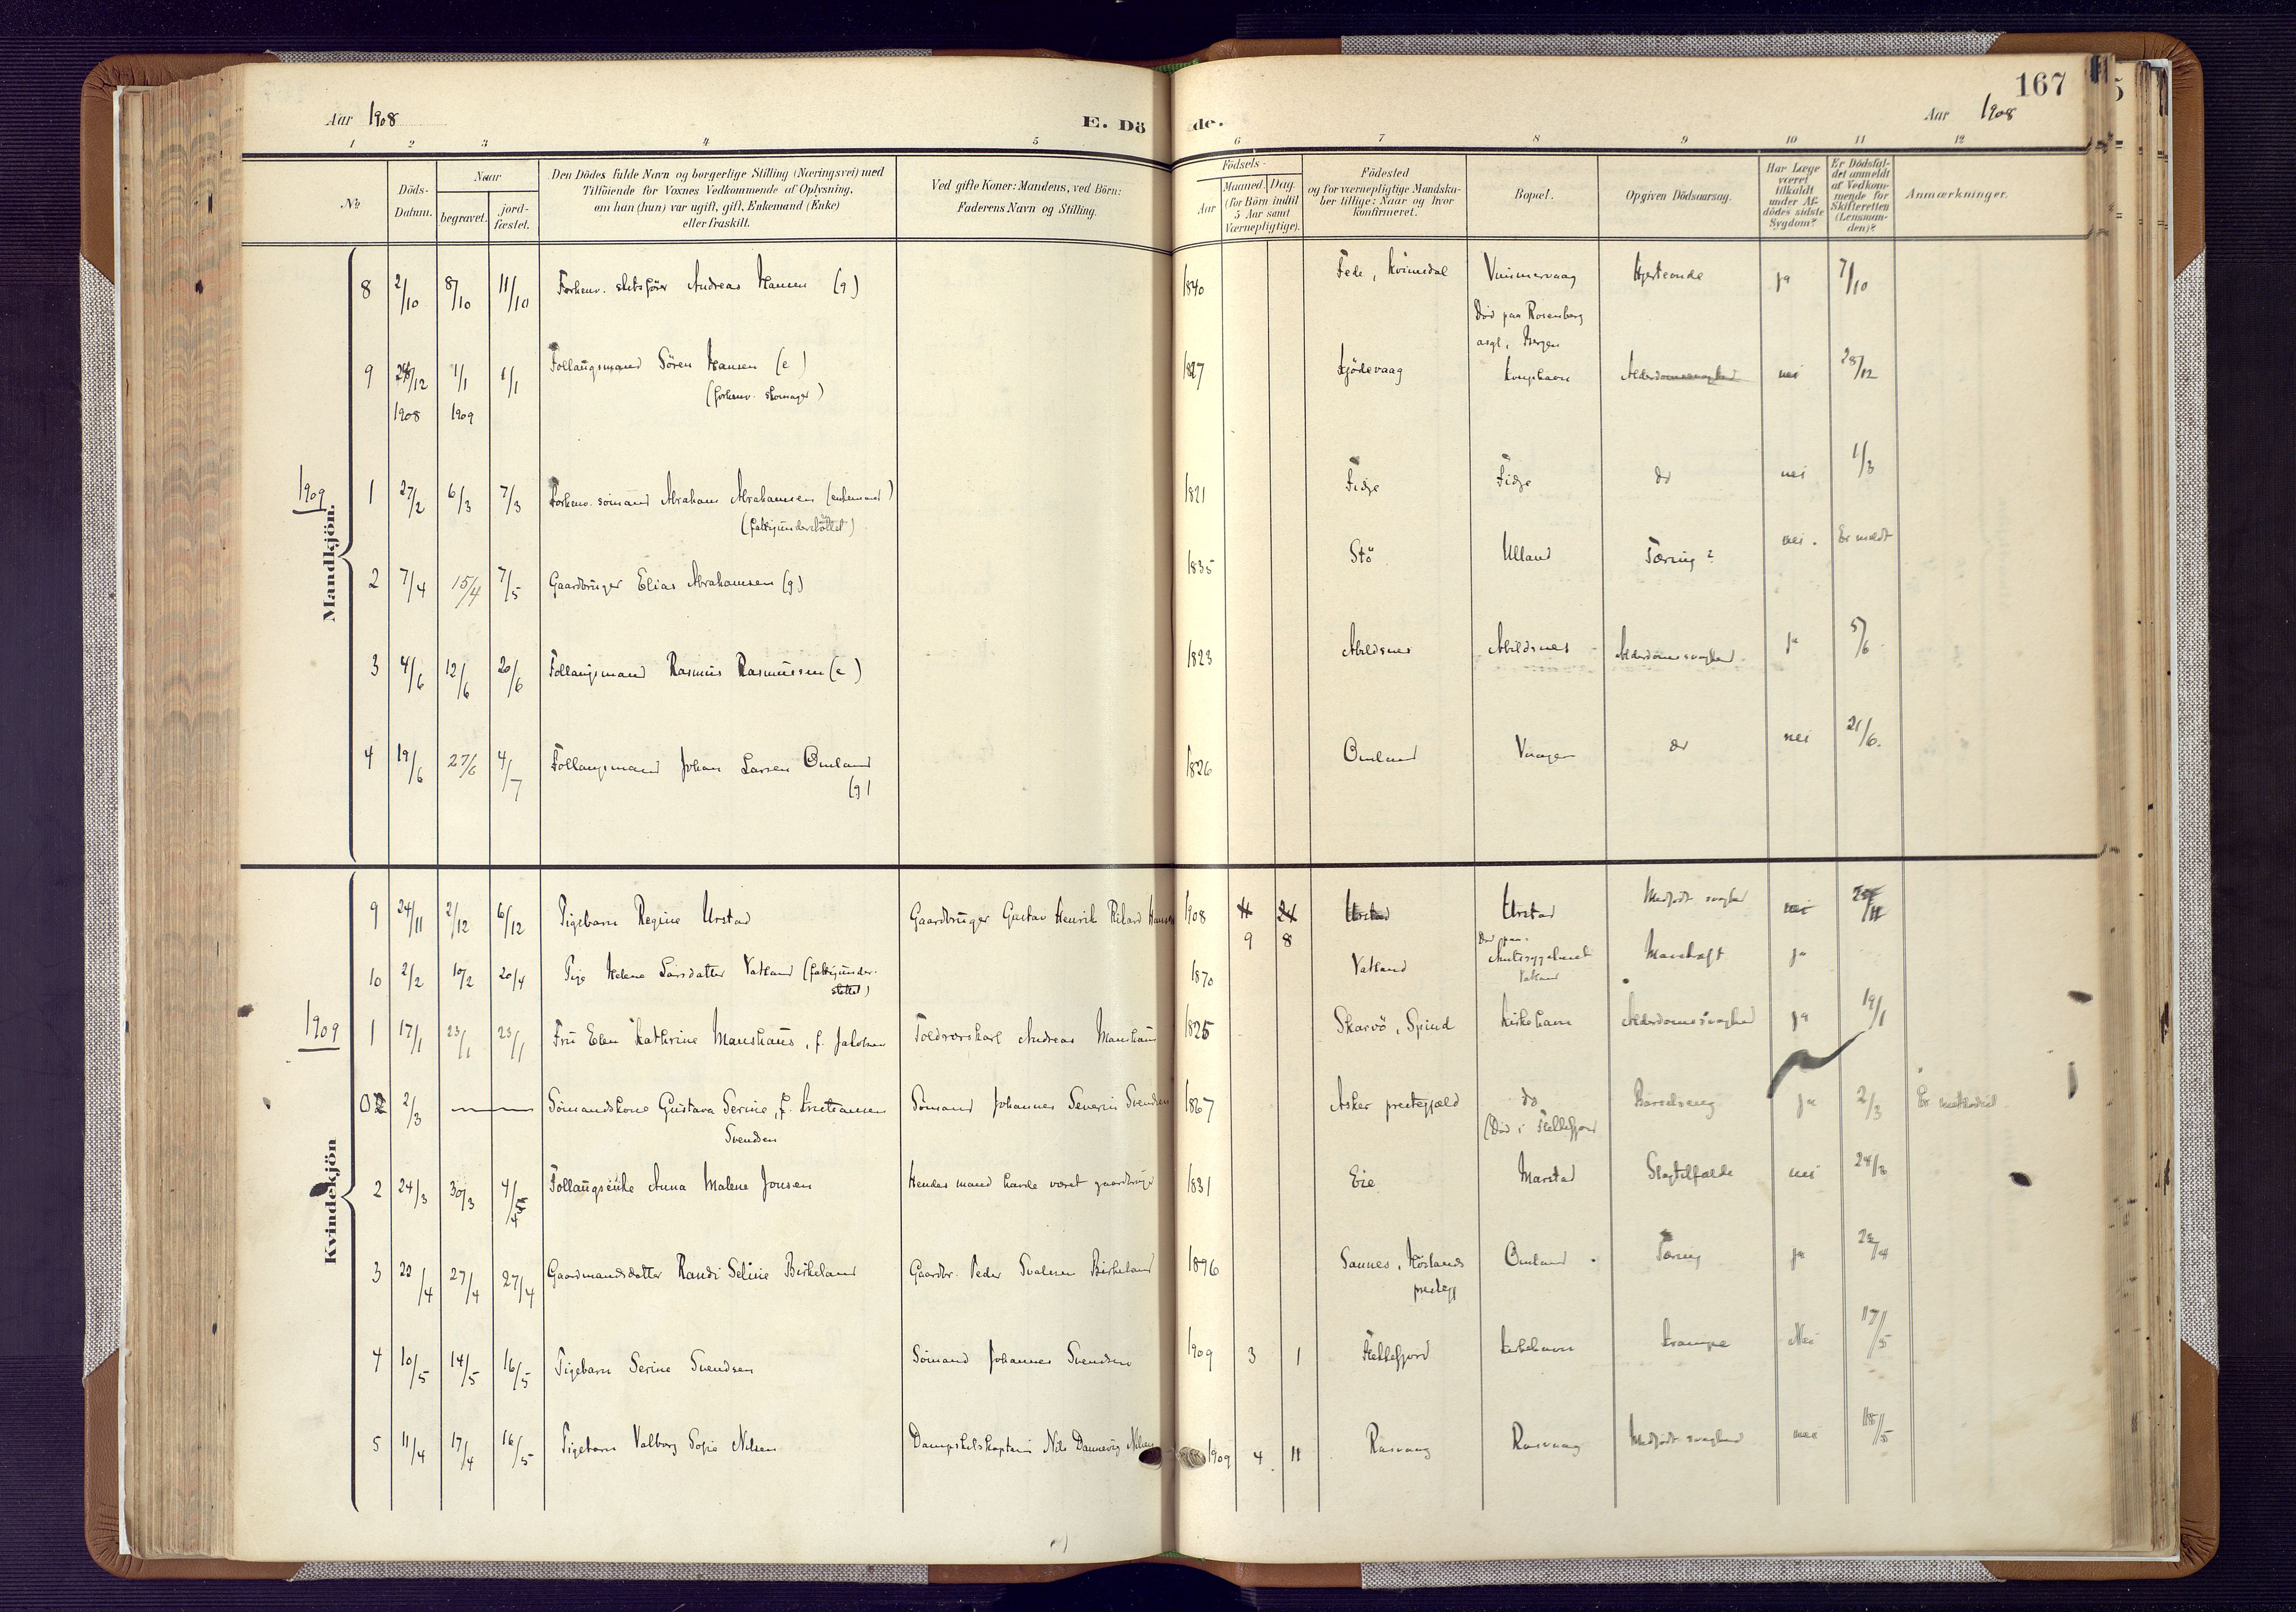 167
Aar 1908
E. Döde.
Aar 1908
1 2 3 4 5 6 7 8 9 10 11 12
No
Döds-Datum.
Naar
begravet.
jordfæstet.
Den Dödes fulde Navn og borgerlige Stilling (Næringsvei) med
Tilföiende for Voxnes Vedkommende af Oplysning,
om han (hun) var ugift, gift, Enkemand (Enke)
eller fraskilt.
Ved gifte Koner: Mandens, ved Börn:
Faderens Navn og Stilling.
Födsels-
Aar
Maaned. Dag.
(for Börn indtil
5 Aar samt
Værnepligtige).
Födested
og for værnepligtige Mandska-
ber tillige: Naar og hvor
konfirmeret.
Bopæl.
Opgiven Dödsaarsag.
Har Læge
været
tilkaldt
under Af-
dödes sidste
Sygdom?
Er Dödsfal-
det anmeldt
af Vedkom-
mende for
Skifteretten
(Lensman-
den)?
Anmærkninger.
Mandkjön.
8 2/10 8/10 11/10 Forhenv. skibsfører Andreas Hansen (g) 1840 Fede, Kvinesdal Hjerteonde ja 7/10
Død paa Rosenberg
asyl, Bergen
9 28/12 1/1 1/1 Follaugsmand Sören Hansen (e) 1827 Kjödevaag Alderdomssvaghed nei 28/12
1908 1909 (forhenv. skomager)
1909
1 27/2 6/3 7/3 Forhenv. sømand Abraham Abrahamsen (enkemand) 1821 Fidje Fidje do nei 1/3
(fattigunderstöttet)
2 7/4 15/4 7/5 Gaardbruger Elias Abrahamsen (g) 1835 Stö Ulland Tæring? nei. Er meldt
3 4/6 12/6 20/6 Follaugsmand Rasmus Rasmussen (e) 1823 Abildsnes Abildsnes Alderdomssvaghed ja 5/6
4 19/6 27/6 4/7 Follaugsmand Johan Larsen Omland 1826 Omland Vaagen do nei 21/6.
(g)
Kvindekjön
9 24/11 2/12 6/12 Pigebarn Regine Urstad Gaardbruger Gustav Henrik Rikard Hansen 1908 Urstad Urstad Medfødt svaghed nei
9 8
10 2/2 10/2 20/4 Pige Helene Larsdatter Vatland (fattigunder-
støttet) 1870 Vatland Død paa Amtssygehuset Marvkræft ja
Vatland
1909
1 17/1 23/1 23/1 Fru Elen Kathrine Manshaus, f. Jakobsen Toldrorskarl Andreas Manshaus 1825 Skarvö, Spind Kirkehavn Alderdomssvaghed ja 19/1
2/3 Sømandskone Gustava Serine, f. Kristiansen Sømand Johannes Severin Svendsen 1867 Asker prestegjæld do Barselseng ja 2/3
Svendsen (Død i Flekkefjord
2 24/3 30/3 4/4 Follaugsenke Anna Malene Jonsen Hendes mand havde været gaardbruger 1831 Eie Marstad Slagtilfælde nei 24/3
3 22/4 27/4 27/4 Gaardmandsdatter Randi Seline Birkeland Gaardbr. Peder Svalesen Birkeland 1896 Sannes, Omland Tæring ja
prestegj
4 10/5 14/5 16/5 Pigebarn Serine Svendsen Sømand Johannes Svendsen 1909 3 1 Flekkefjord Kirkehavn Krampe Nei 17/5
5 11/4 17/4 16/5 Pigebarn Valborg Sofie Nilsen Dampskibskaptein Nils Dannevig Nilsen 1909 4 11 Rasvaag Rasvaag Medfødt svaghed nei